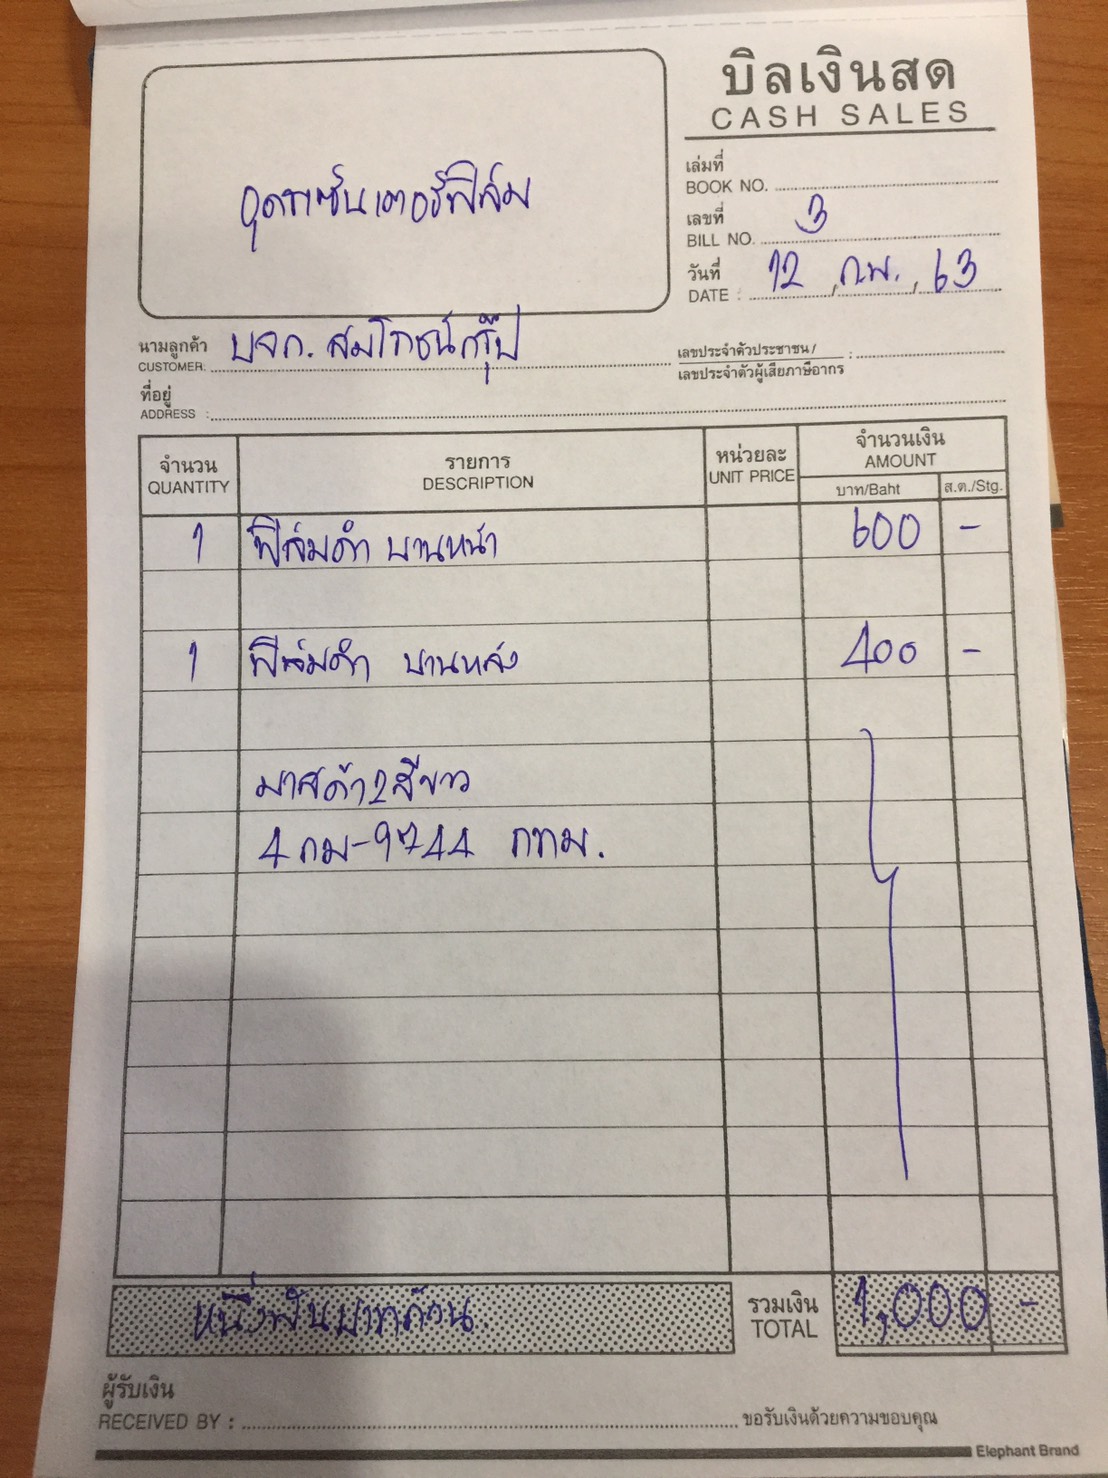 บิลเงินสด
CASH SALES
อุดรเซ็นเตอร์ฟิล์ม
เล่มที่
BOOK NO.
เลขที่
BILL NO. 3
วันที่
DATE : 12 , ก.พ. , 63
นามลูกค้า
CUSTOMER: บจก. สมโภชน์กรุ๊ป
เลขประจำตัวประชาชน / :
เลขประจำตัวผู้เสียภาษีอากร
ที่อยู่
ADDRESS :
จำนวน รายการ หน่วยละ จำนวนเงิน
QUANTITY DESCRIPTION UNIT PRICE AMOUNT
บาท/Baht ส.ต./Stg.
1 ฟิล์มดำ บานหน้า 600 -
1 ฟิล์มดำ บานหลัง 400 -
มาสด้า2สีขาว
4กม-9744 กทม.
หนึ่งพันบาทถ้วน
รวมเงิน 1,000 -
TOTAL
ผู้รับเงิน
RECEIVED BY : ขอรับเงินด้วยความขอบคุณ
Elephant Brand